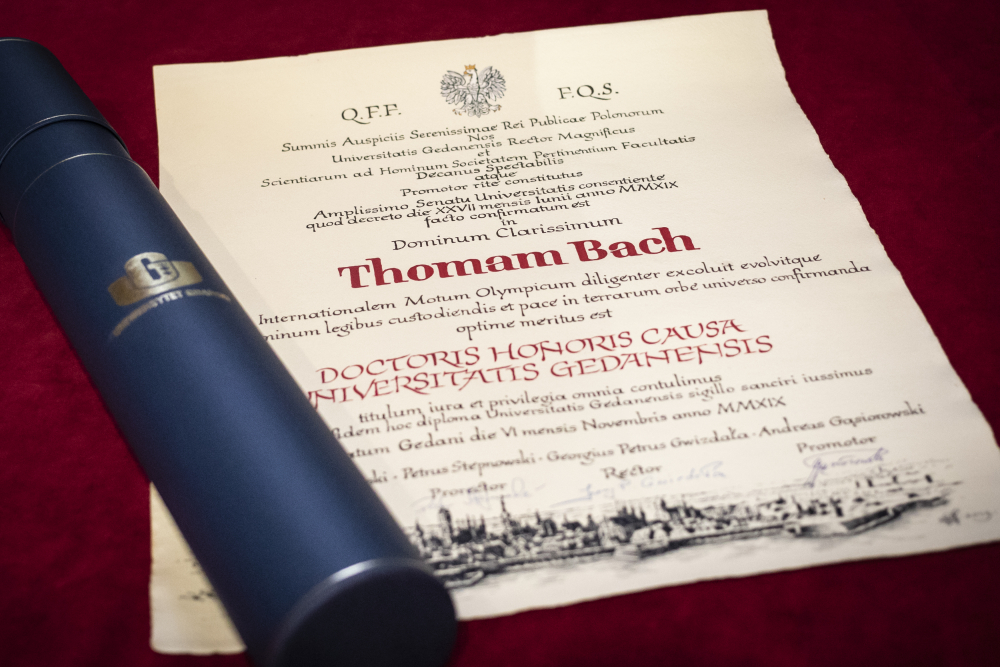 Q.F.F. F.Q.S.
Summis Auspiciis Serenissimae Rei Publicae Polonorum
Nos
Universitatis Gedanensis Rector Magnificus
et
Scientiarum ad Hominum Societatem Pertinentium Facultatis
Decanus Spectabilis
atque
Promotor rite constitutus
Amplissimo Senatu Universitatis consentiente
quod decreto die XXVII mensis Iunii anno MMXIX
facto confirmatum est
in
Dominum Clarissimum
Thomam Bach
Internationalem Motum Olympicum diligenter excoluit evolvitque
minum legibus custodiendis et pace in terrarum orbe universo confirmanda
optime meritus est
DOCTORIS HONORIS CAUSA
NIVERSITATIS GEDANENSIS
titulum iura et privilegia omnia contulimus
fidem hoc diploma Universitatis Gedanensis sigillo sanciri iussimus
tum Gedani die VI mensis Novembris anno MMXIX
ski · Petrus Stepnowski · Georgius Petrus Gwizdała · Andreas Gąsiorowski
Prorector Rector Promotor
UNIWERSYTET GDAŃSKI